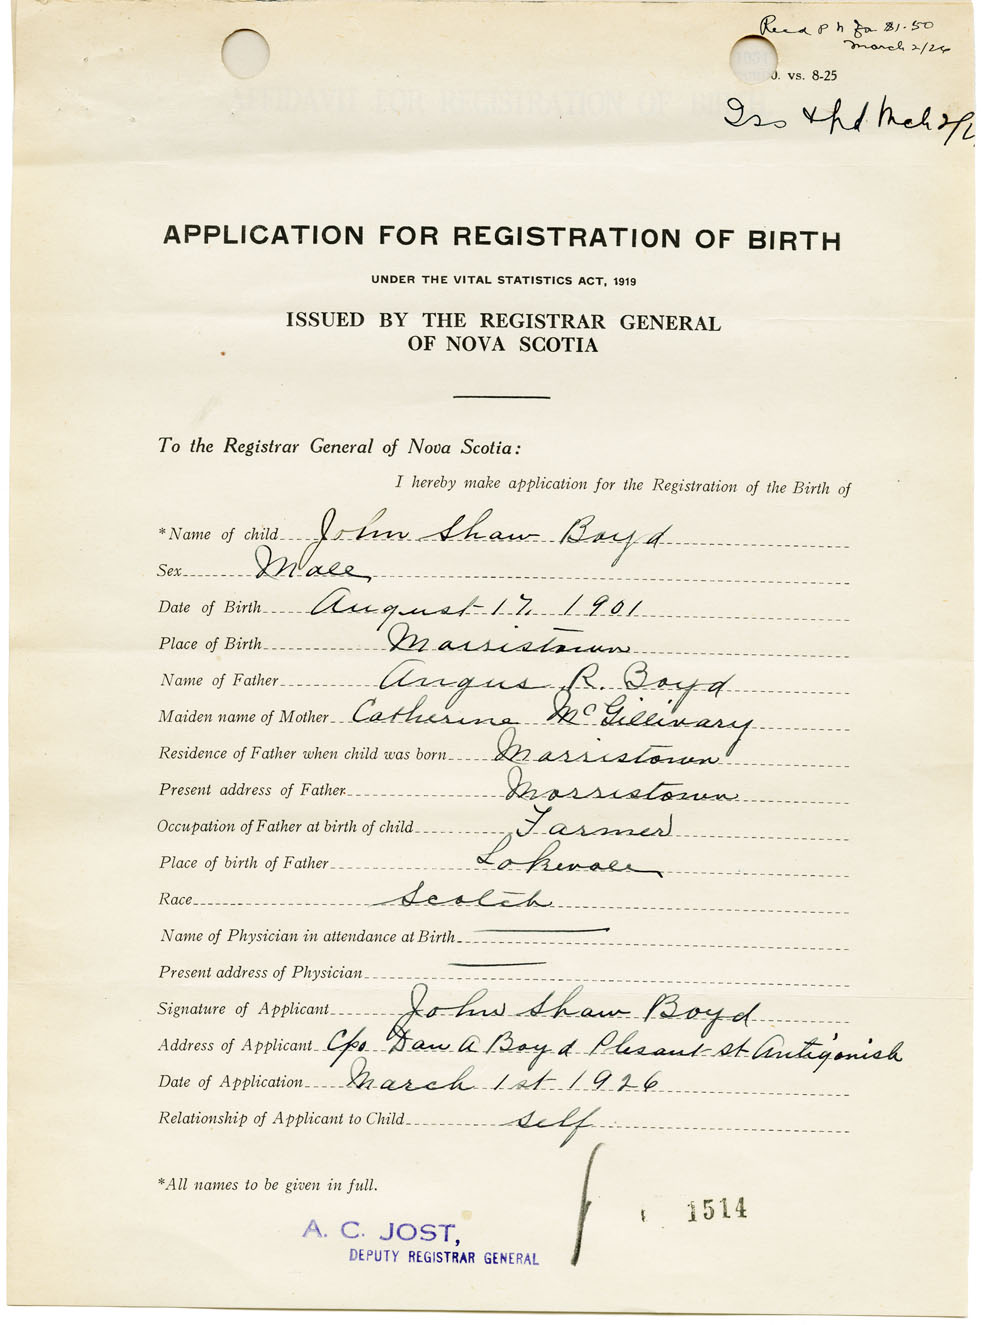 Recd P N for $1.50
March 2/26
0. vs. 8-25
Iss & fd Mch 2/
APPLICATION FOR REGISTRATION OF BIRTH
UNDER THE VITAL STATISTICS ACT, 1919
ISSUED BY THE REGISTRAR GENERAL
OF NOVA SCOTIA
To the Registrar General of Nova Scotia:
I hereby make application for the Registration of the Birth of
*Name of child John Shaw Boyd
Sex Male
Date of Birth August 17, 1901
Place of Birth Morristown
Name of Father Angus R. Boyd
Maiden name of Mother Catherine McGillivary
Residence of Father when child was born Morristown
Present address of Father Morristown
Occupation of Father at birth of child Farmer
Place of birth of Father Lokevale
Race Scotch
Name of Physician in attendance at Birth
Present address of Physician
Signature of Applicant John Shaw Boyd
Address of Applicant C/o Dan A Boyd Plesant St Antigonish
Date of Application March 1st 1926
Relationship of Applicant to Child self
*All names to be given in full.
1514
A. C. JOST,
DEPUTY REGISTRAR GENERAL